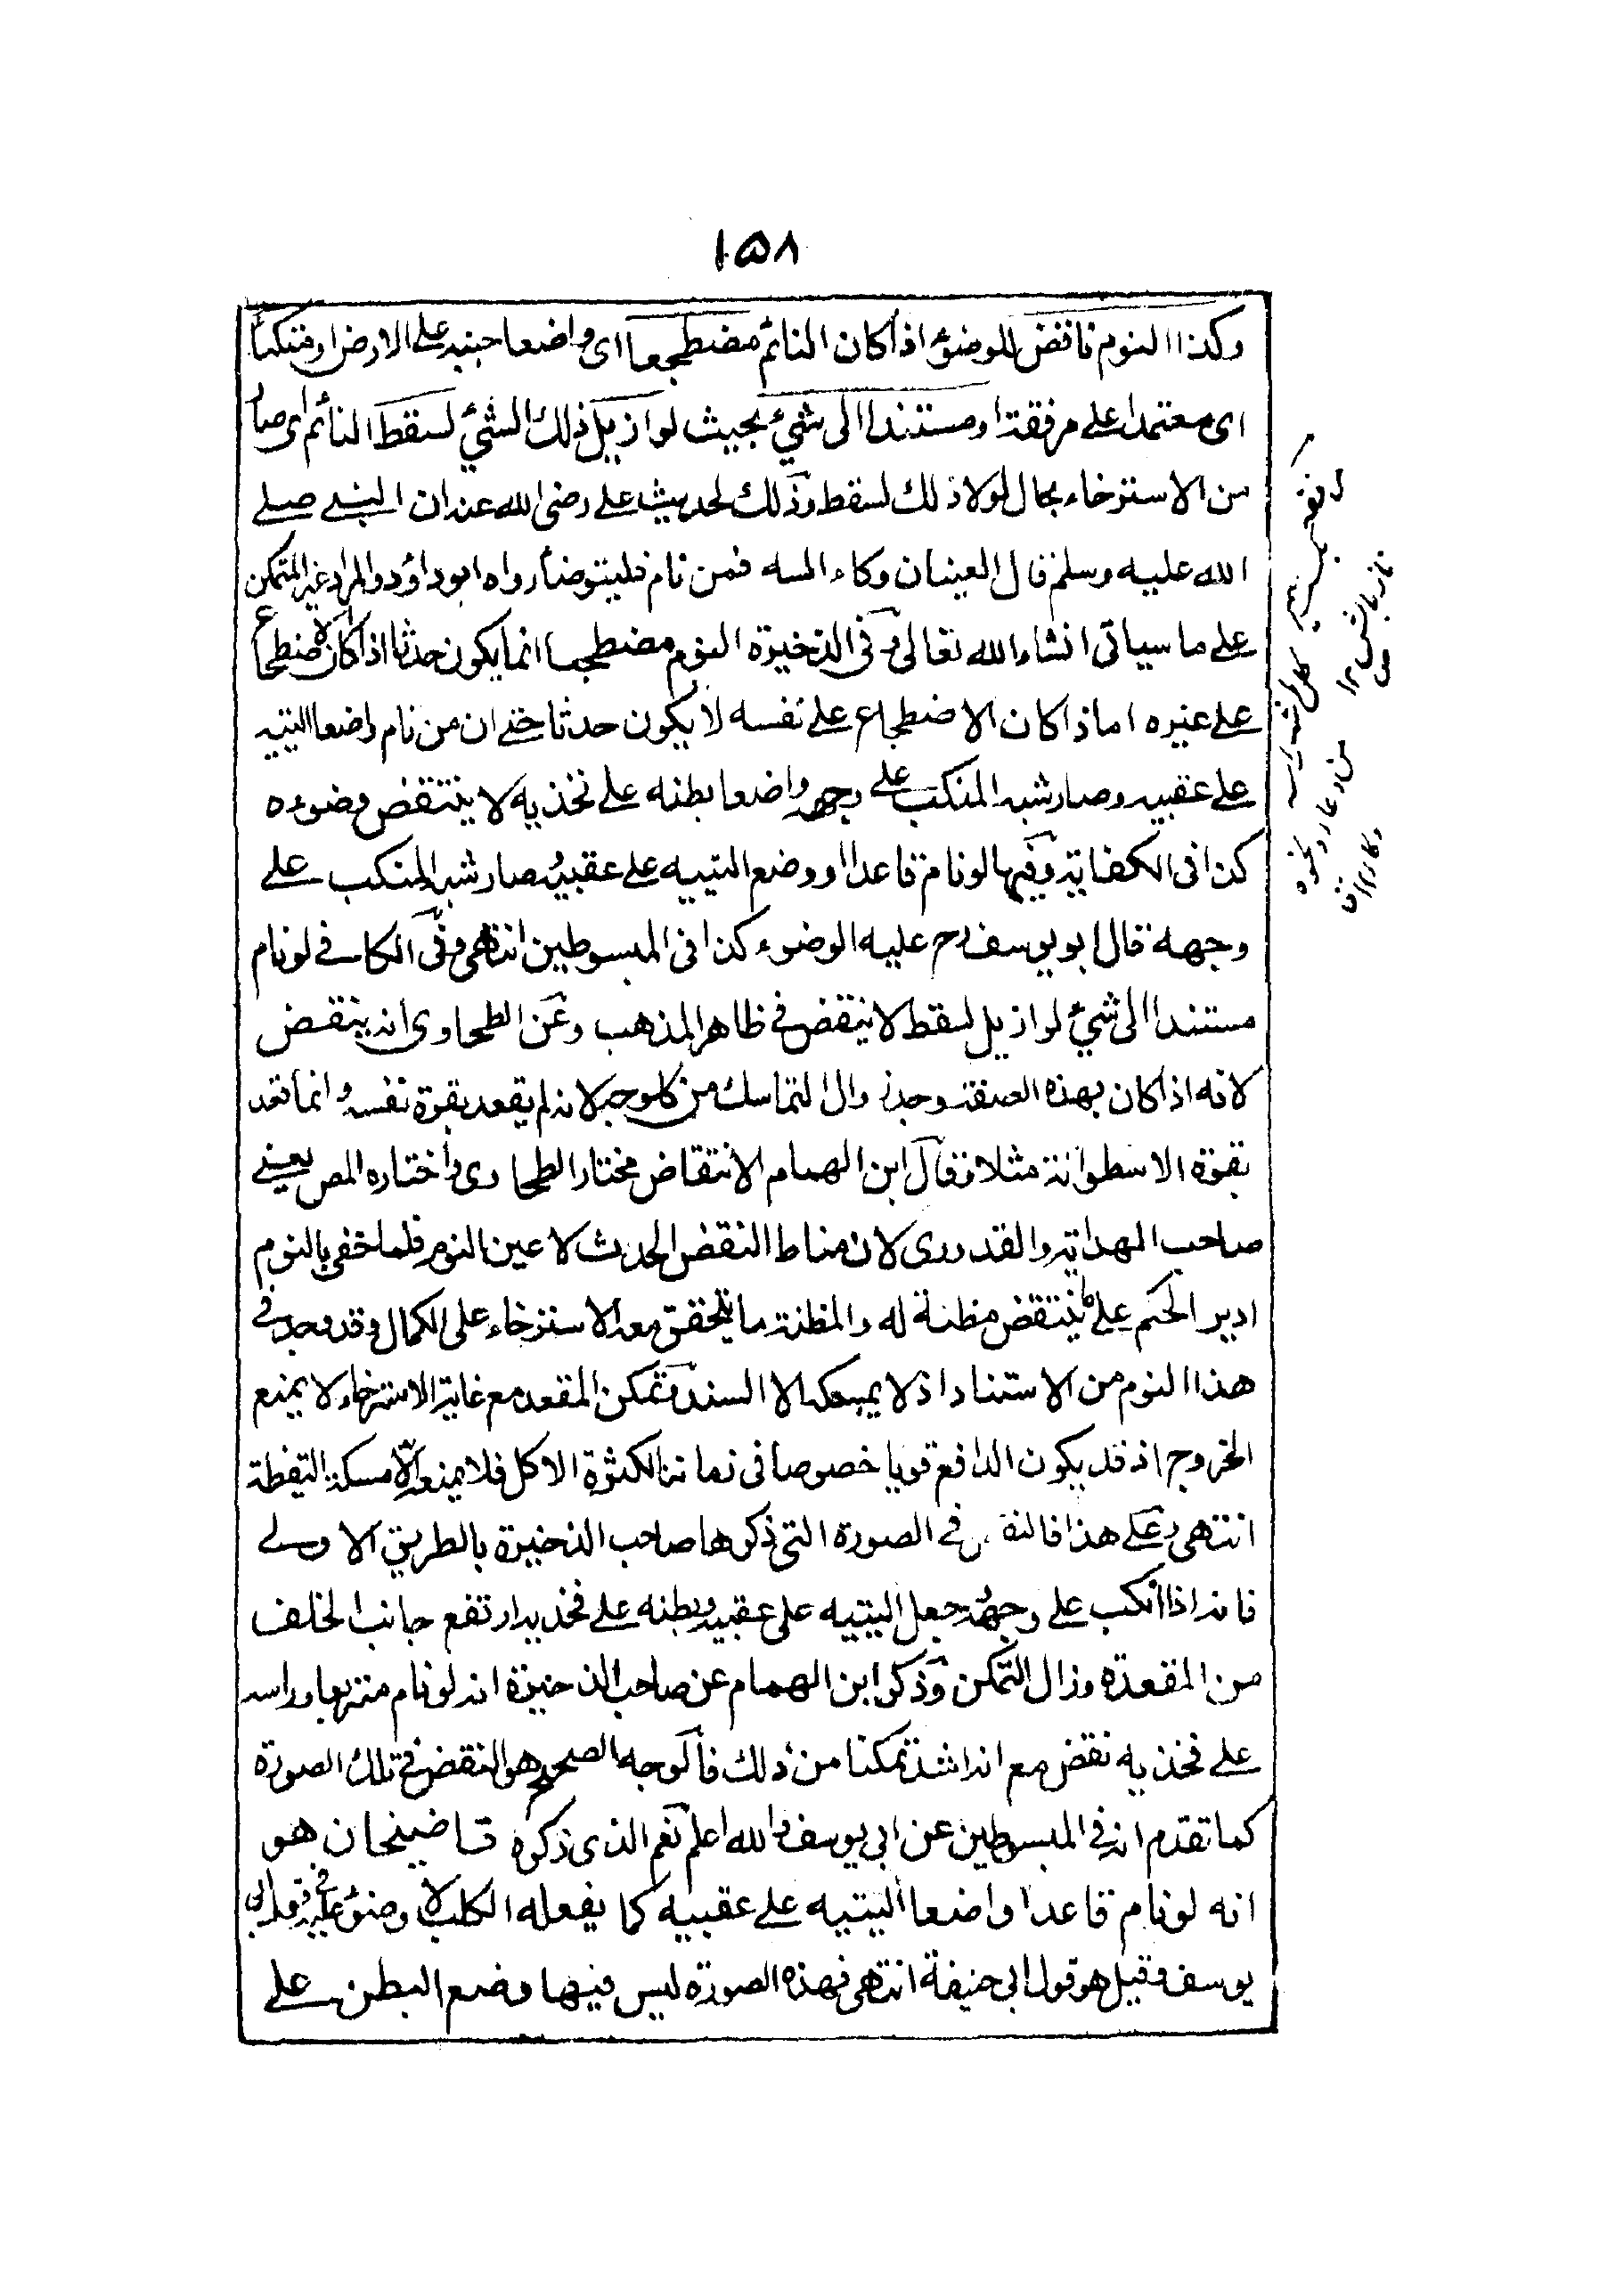 ١٥٨
وكذا النوم ناقض للوضوء اذا كان النائم مضطجعا اى واضعا جنبه على الارض او متكئا
اى معتمدا على مرفقة او مستندا الى شيء بحيث لو ازيل ذلك الشيء لسقط النائم اى صار
من الاسترخاء بحال لولا ذلك لسقط وذلك لحديث على رضى الله عنه ان النبى صلى
الله عليه وسلم قال العينان وكاء السه فمن نام فليتوضأ رواه ابوداؤد والمراد غير المتمكن
على ما سياتى انشاء الله تعالى وفى الذخيرة النوم مضطجعا انما يكون حدثا اذا كان الاضطجاع
على غيره اما اذا كان الاضطجاع على نفسه لا يكون حدثا حتى ان من نام واضعا اليتيه
على عقبيه وصار شبه المنكب على وجهه واضعا بطنه على فخذيه لا ينتقض وضوءه
كذا فى الكفاية وفيها لو نام قاعدا او وضع اليتيه على عقبيه وصار شبه المنكب على
وجهه قال ابو يوسف رح عليه الوضوء كذا فى المبسوطين انتهى وفى الكافى لو نام
مستندا الى شيء لو ازيل لسقط لا ينتقض فى ظاهر المذهب وعن الطحاوى انه ينتقض
لانه اذا كان بهذه الصفة وجد زوال التماسك من كل وجه لانه لم يقعد بقوة نفسه وانما قعد
بقوة الاسطوانة مثلا وقال ابن الهمام الانتقاض مختار الطحاوى واختاره المص يعنى
صاحب الهداية والقدورى لان مناط النقض الحدث لا عين النوم فلما خفى بالنوم
ادير الحكم على ما ينتقض مظنة له والمظنة ما يتحقق معه الاسترخاء على الكمال وقد وجد فى
هذا النوم من الاستناد اذ لا يمسكه الا السند وتمكن المقعد مع غاية الاسترخاء لا يمنع
الخروج اذ قد يكون الدافع قويا خصوصا فى زماننا لكثرة الاكل فلا يمنعه الا مسكة اليقظة
انتهى وعلى هذا فالنقض فى الصورة التى ذكرها صاحب الذخيرة بالطريق الاولى
فانه اذا انكب على وجهه وجعل اليتيه على عقبيه وبطنه على فخذيه ارتفع جانب الخلف
من المقعدة وزال التمكن وذكر ابن الهمام عن صاحب الذخيرة انه لو نام متربعا وراسه
على فخذيه نقض مع انه اشد تمكنا من ذلك فالوجه الصحيح هو النقض فى تلك الصورة
كما تقدم انه فى المبسوطين عن ابى يوسف والله اعلم نعم الذى ذكره قاضيخان هو
انه لو نام قاعدا واضعا اليتيه على عقبيه كما يفعله الكلب لا وضوء عليه فى قول ابى
يوسف وقيل هو قول ابى حنيفة انتهى فهذه الصورة ليس فيها وضع البطن على